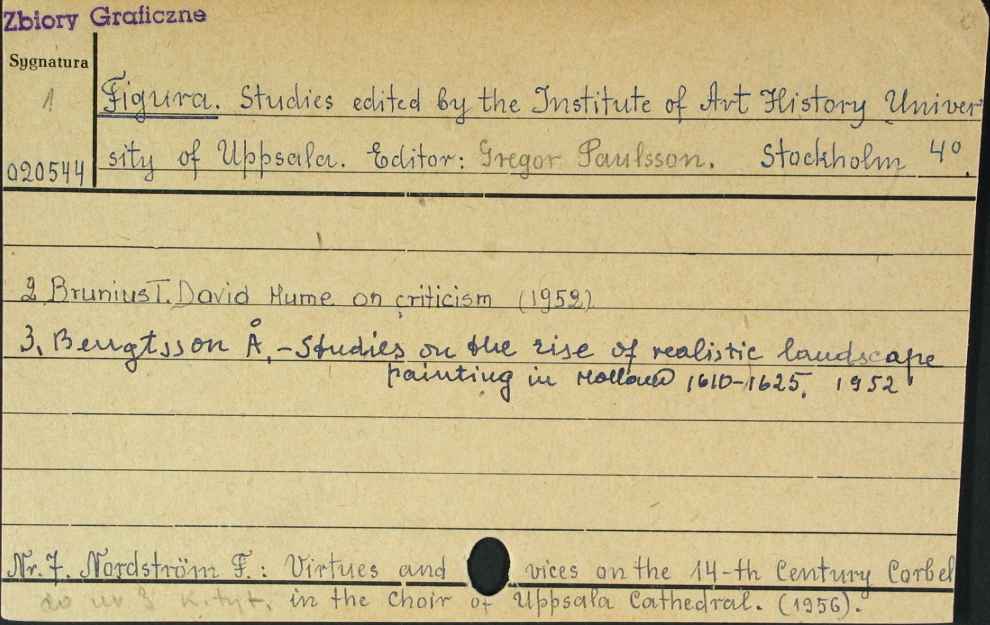 Zbiory Graficzne
Sygnatura
1
Figura. Studies edited by the Institute of Art History Univer
020544
sity of Uppsala. Editor: Gregor Paulsson. Stockholm 4°.
2. Brunius T. David Hume on criticism (1952)
3. Bengtsson Å. - Studies on the rise of realistic landscape
painting in Holland 1610-1625, 1952
Nr. 7. Nordström F.: Virtues and vices on the 14-th Century Corbel
do nr 3 k.tyt. in the Choir of Uppsala Cathedral. (1956).